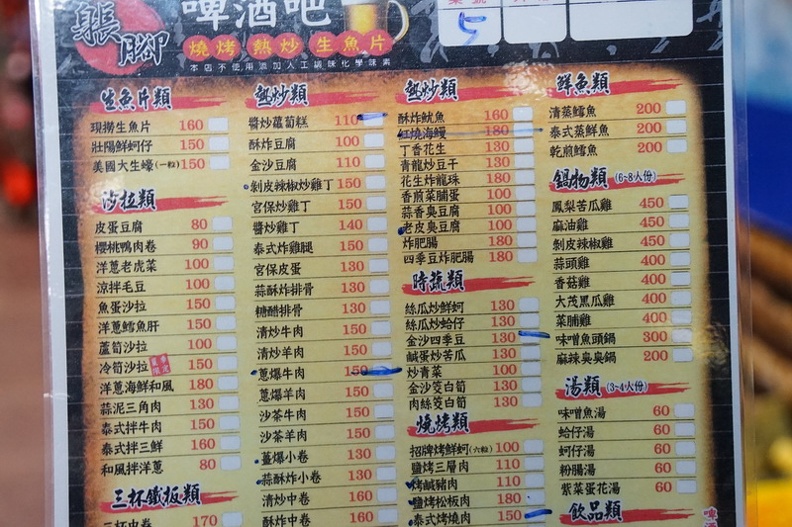 張腳
啤酒吧
燒烤 熱炒 生魚片
本店不使用添加人工調味化學味素
5
生魚片類
現撈生魚片 160
壯陽鮮蚵仔 150
美國大生蠔(一粒) 150
沙拉類
皮蛋豆腐 80
櫻桃鴨肉卷 90
洋蔥老虎菜 100
涼拌毛豆 100
魚蛋沙拉 150
洋蔥鱈魚肝 150
蘆筍沙拉 100
冷筍沙拉 150
洋蔥海鮮和風 180
蒜泥三角肉 130
泰式拌牛肉 150
泰式拌三鮮 160
和風拌洋蔥 80
三杯鐵板類
三杯中卷 170
熱炒類
醬炒蘿蔔糕 110
酥炸豆腐 100
金沙豆腐 110
剝皮辣椒炒雞丁 150
宮保炒雞丁 150
醬炒雞丁 140
泰式炸雞腿 150
宮保皮蛋 130
蒜酥炸排骨 130
糖醋排骨 130
清炒牛肉 150
清炒羊肉 150
蔥爆牛肉 150
蔥爆羊肉 150
沙茶牛肉 150
沙茶羊肉 150
薑爆小卷 130
蒜酥炸小卷 130
清炒中卷 160
酥炸中卷 160
熱炒類
酥炸魷魚 160
紅燒海鰻 180
丁香花生 130
青龍炒豆干 130
花生炸龍珠 180
香煎菜脯蛋 100
蒜香臭豆腐 100
老皮臭豆腐 100
炸肥腸 180
四季豆炸肥腸 180
時蔬類
絲瓜炒鮮蚵 130
絲瓜炒蛤仔 130
金沙四季豆 130
鹹蛋炒苦瓜 130
炒青菜 100
金沙茭白筍 130
肉絲茭白筍 130
燒烤類
招牌烤鮮蚵(六粒) 100
鹽烤三層肉 110
烤鹹豬肉 110
鹽烤松板肉 180
泰式烤燒肉 150
鮮魚類
清蒸鱈魚 200
泰式蒸鮮魚 200
乾煎鱈魚 200
鍋物類 (6-8人份)
鳳梨苦瓜雞 450
麻油雞 450
剝皮辣椒雞 450
蒜頭雞 400
香菇雞 400
大茂黑瓜雞 400
菜脯雞 400
味噌魚頭鍋 300
麻辣臭臭鍋 200
湯類 (3-4人份)
味噌魚湯 60
蛤仔湯 60
蚵仔湯 60
粉腸湯 60
紫菜蛋花湯 60
飲品類